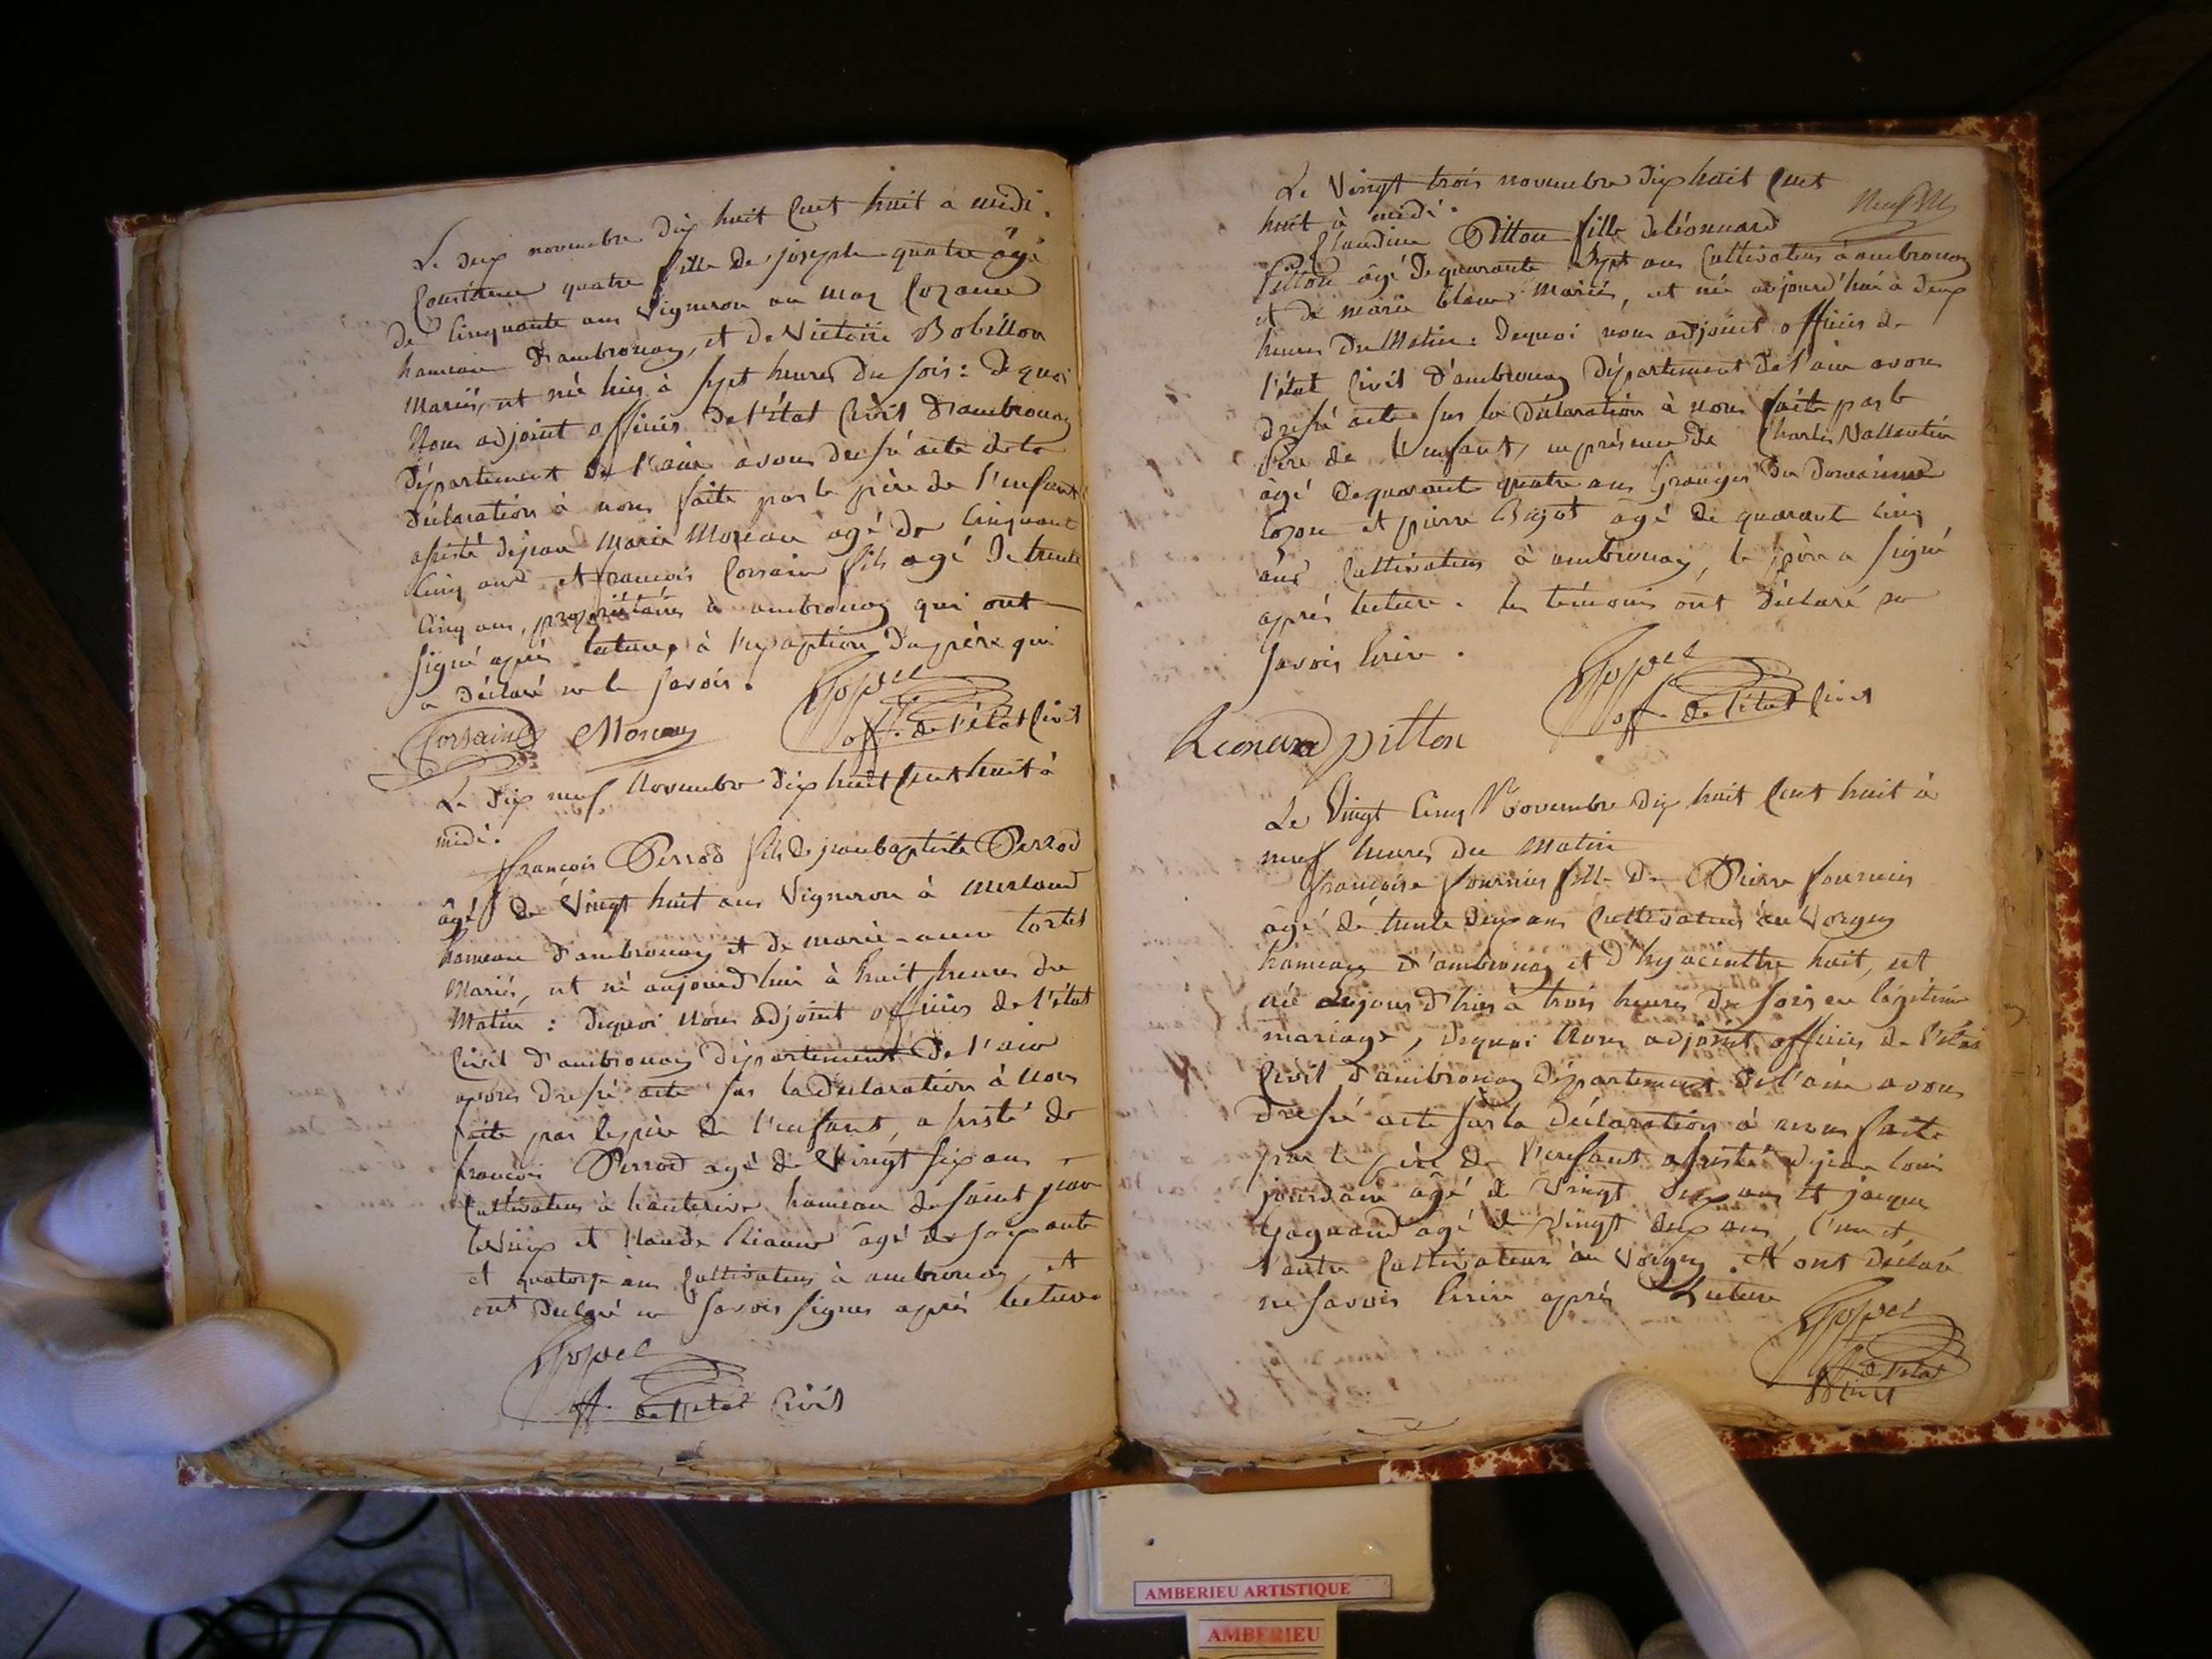 Le deux novembre dix huit cent huit a midi.
Constance quatre fille de joseph quatre âgé
de cinquante ans vigneron au maz
hameau d'ambronay, et de Victoire Bobillon
mariés, est née hier à sept heures du soir : de quoi
Nous adjoint officier de l'état civil d'ambronay
département de l'ain avons dressé acte de la
déclaration à nous faite par le père de l'enfant
assisté de jean marie Moreau agé de cinquant
cinq ans et françois Corsain fils agé de trente
cinq ans, propriétaires à ambronay qui ont
signé après lecture, à l'exception du père qui
a déclaré ne le savoir.
Corsain Moreau
off. de l'état Civil
Le dix neuf Novembre dix huit cent huit à
midi.
françois Perrod fils de jean baptiste Perrod
âgé de vingt huit ans vigneron à merland
hameau d'ambronay et de marie-anne tortel
mariés, est né aujourd'hui à huit heures du
matin : dequoi nous adjoint officier de l'état
civil d'ambronay département de l'ain
avons dressé acte sur la déclaration à nous
faite par le père de l'enfant, assisté de
françois Perrod agé de vingt six ans
cultivateur à hauterive hameau de saint jean
le vieux et Claude âgé de soixante
et quatorze ans cultivateur à ambronay, et
ont déclaré ne savoir signer après lecture
off. de l'état Civil
Le vingt trois novembre dix huit cent
huit à midi.
Claudine Pitton fille de léonnard
Pitton âgé de quarante sept ans cultivateur à ambronay
et de marie blanc mariés, est née aujourd'hui à deux
heures du matin : dequoi nous adjoint officier de
l'état civil d'ambronay département de l'ain avons
dressé acte sur la déclaration à nous faite par le
père de l'enfant, en présence de Charles Vallentin
âgé de quarante quatre ans granger du domaine
et pierre Bugot âgé de quarant cinq
ans cultivateur à ambronay, le père a signé
après lecture. les témoins ont déclaré ne
savoir écrire.
off. de l'état Civil
Leonard pitton
Le Vingt cinq Novembre dix huit cent huit à
neuf heures du matin
françoise fournier fille de Pierre fournier
âgé de trente deux ans cultivateur au Vorgey
hameau d'ambronay et d'hyacinthe huit, est
née le jour d'hier à trois heures du soir en légitime
mariage, dequoi Nous adjoint officier de l'état
civil d'ambronay département de l'ain avons
dressé acte sur la déclaration à nous faite
par le père de l'enfant assisté de jean louis
jourdain âgé de vingt deux ans et jacques
âgé de vingt deux ans, l'un et
l'autre cultivateur au Vorgey. et ont déclaré
ne savoir écrire après lecture
off. de l'état
civil
AMBERIEU ARTISTIQUE
AMBERIEU